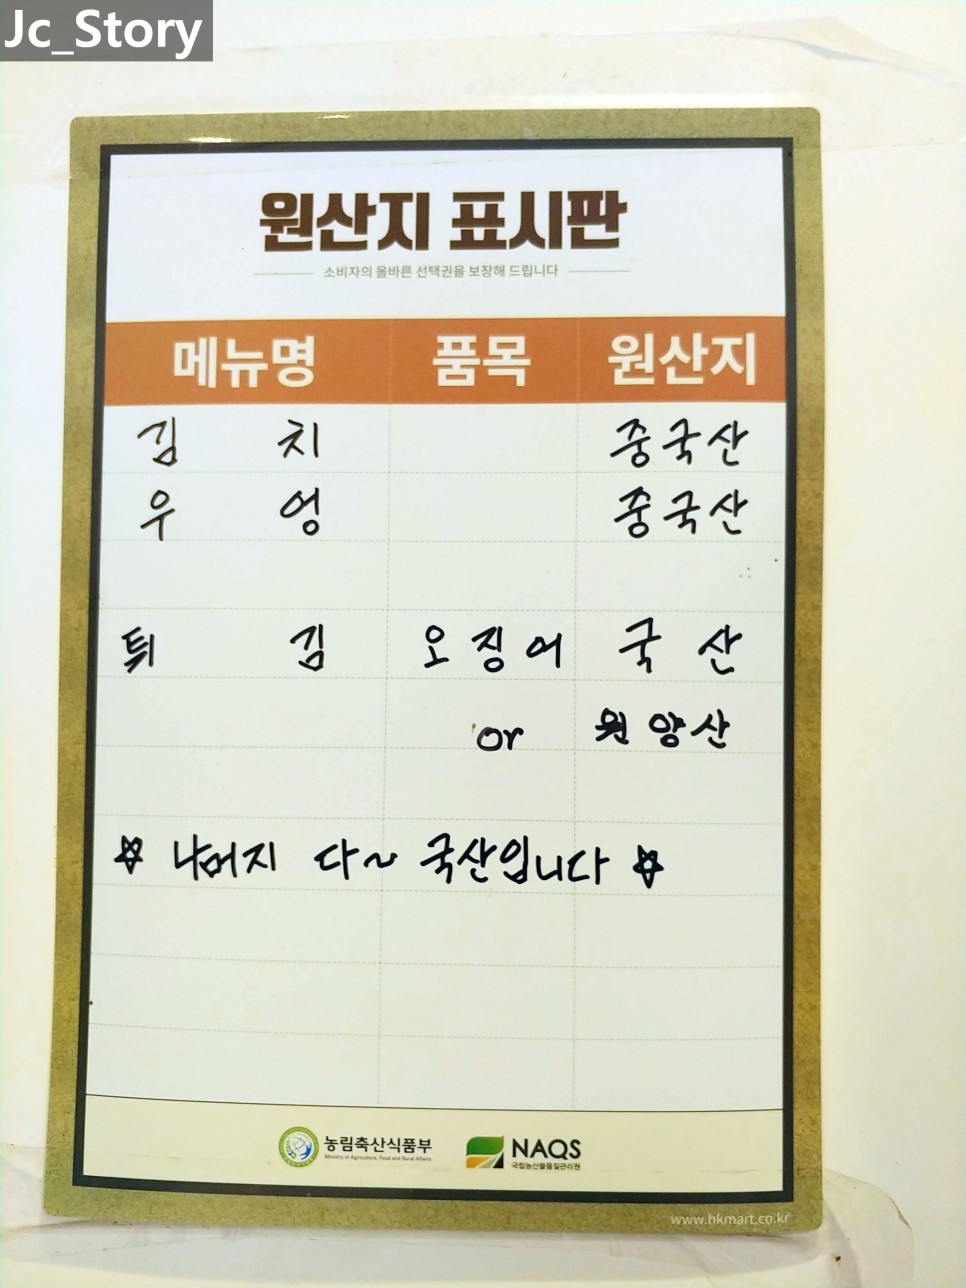 Jc_Story
원산지 표시판
소비자의 올바른 선택권을 보장해 드립니다
메뉴명 품목 원산지
김치 중국산
우엉 중국산
튀김 오징어 국산
or 원양산
☆ 나머지 다~ 국산입니다 ☆
농림축산식품부 NAQS
Ministry of Agriculture, Food and Rural Affairs 국립농산물품질관리원
www.hkmart.co.kr